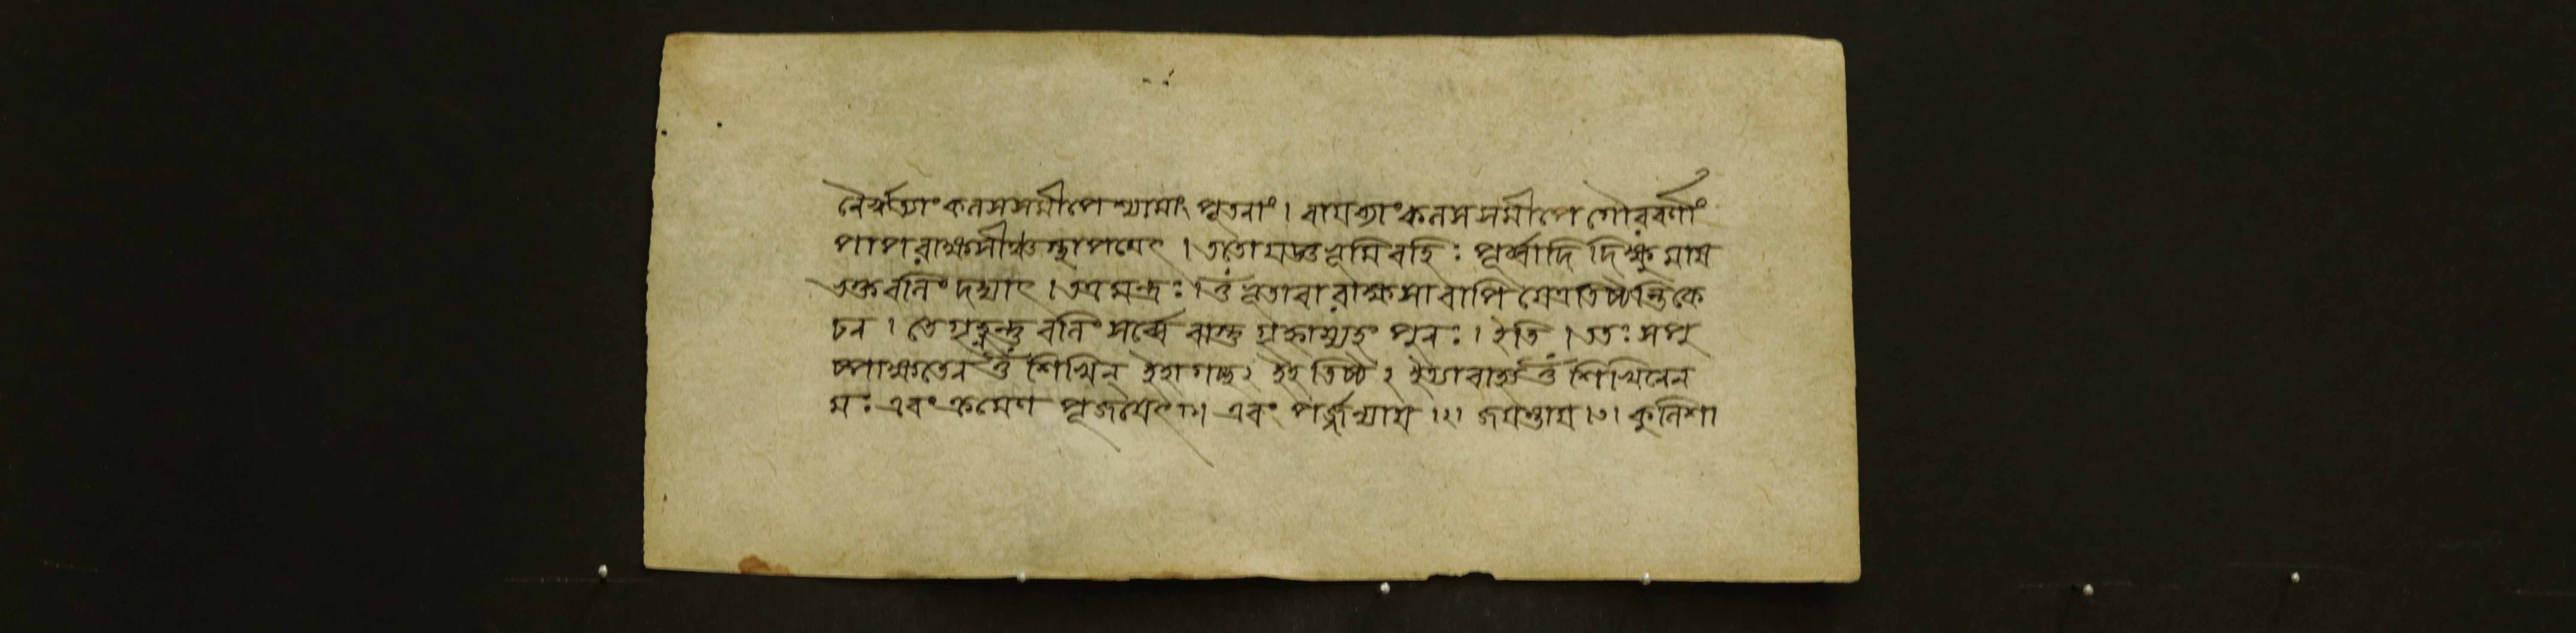 নৈরৃত্যাং কলসসমীপে শ্যামাং পূতনাং । বাযব্যাং কলসসমীপে গৌরবর্ণাং
পাপরাক্ষসীঞ্চ স্থাপযেৎ । ততো মণ্ডপভূমি বহিঃ পূর্ব্বাদি দিক্ষু মাষ
ভক্তবলিং দদ্যাৎ । তত্র মন্ত্রঃ । ওঁ ভূতা বা রাক্ষসা বাপি যেত্র তিষ্ঠন্তি কে
চন । তে গৃহ্ণন্তু বলিং সর্ব্বে বাস্তু গৃহ্নাম্যহং পুনঃ । ইতি । ততঃ সপু
ষ্পাক্ষতেন ওঁ শিখিন্ ইহাগচ্ছ ২ ইহ তিষ্ঠ ২ ইত্যাবাহ্য ওঁ শিখিনে ন
মঃ এবং ক্রমেণ পূজযেৎ ।১। এবং পর্জ্জন্যায ।২। জযন্তায ।৩। কুলিশা